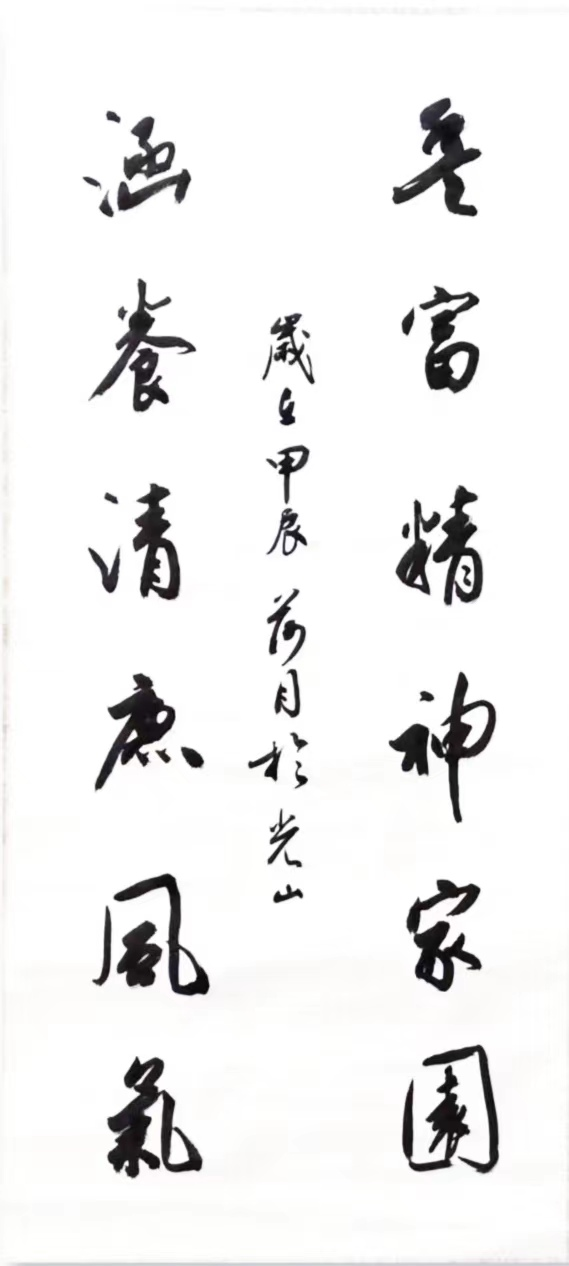 豐富精神家園
涵養清廉風氣
歲在甲辰荷月於光山